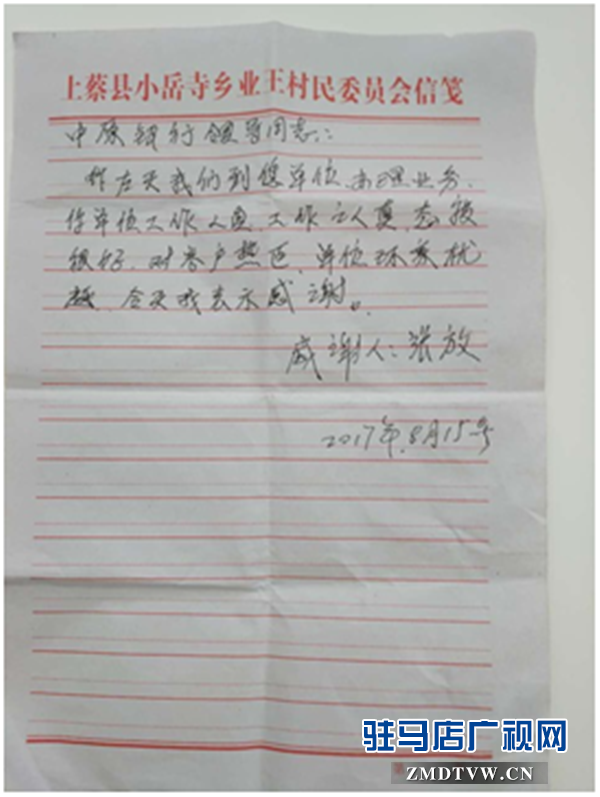 上蔡县小岳寺乡业王村民委员会信笺
中原银行领导同志:
昨左天我们到您单位办理业务.
你单位工作人员.工作认真,态度
很好.对客户热区.单位环境优
越.今天我表示感谢。
感谢人:张放
2017年.8月15号
第
驻马店广视网
ZMDTVW.CN